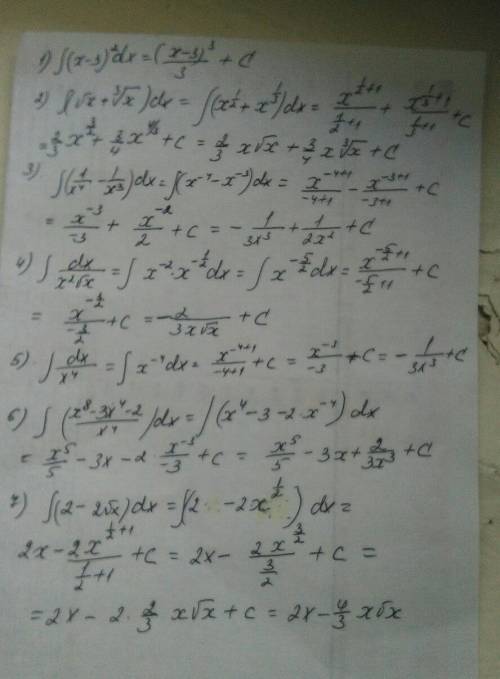 1) ∫(x-3)²dx = (x-3)³/3 + C
2) ∫(√x + ∛x)dx = ∫(x^(1/2) + x^(1/3))dx = x^(1/2+1)/(1/2+1) + x^(1/3+1)/(1/3+1) + C
= 2/3 x^(3/2) + 3/4 x^(4/3) + C = 2/3 x√x + 3/4 x∛x + C
3) ∫(1/x⁴ - 1/x³)dx = ∫(x⁻⁴ - x⁻³)dx = x^(-4+1)/(-4+1) - x^(-3+1)/(-3+1) + C
= x⁻³/-3 + x⁻²/2 + C = - 1/3x³ + 1/2x² + C
4) ∫ dx/(x²√x) = ∫ x⁻²·x^(-1/2) dx = ∫ x^(-5/2) dx = x^(-5/2+1)/(-5/2+1) + C
= x^(-3/2)/(-3/2) + C = -2/(3x√x) + C
5) ∫ dx/x⁴ = ∫ x⁻⁴ dx = x^(-4+1)/(-4+1) + C = x⁻³/-3 + C = - 1/3x³ + C
6) ∫ ((x⁸-3x⁴-2)/x⁴)dx = ∫(x⁴ - 3 - 2·x⁻⁴) dx
= x⁵/5 - 3x - 2·x⁻³/-3 + C = x⁵/5 - 3x + 2/3x³ + C
7) ∫(2 - 2√x)dx = ∫(2 - 2x^(1/2)) dx =
2x - 2x^(1/2+1)/(1/2+1) + C = 2x - 2x^(3/2)/(3/2) + C =
= 2x - 2·2/3 x√x + C = 2x - 4/3 x√x